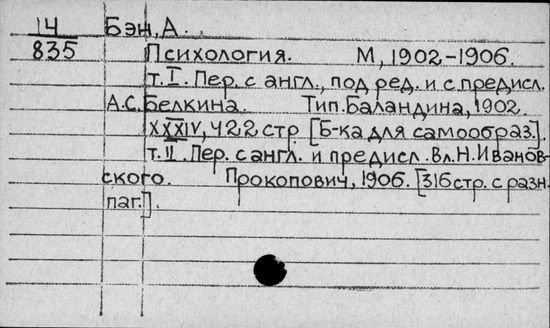 14 Бэн, А.
835 Психология. М, 1902-1906.
т. I. Пер. с англ., под ред. и с предисл.
А.С. Белкина. Тип. Баландина, 1902.
XXXIV, 422 стр [Б-ка для самообраз.].
т. II. Пер. с англ. и предисл. Вл. Н. Иванов-
ского. Прокопович, 1906. [316 стр. с разн.
паг.].